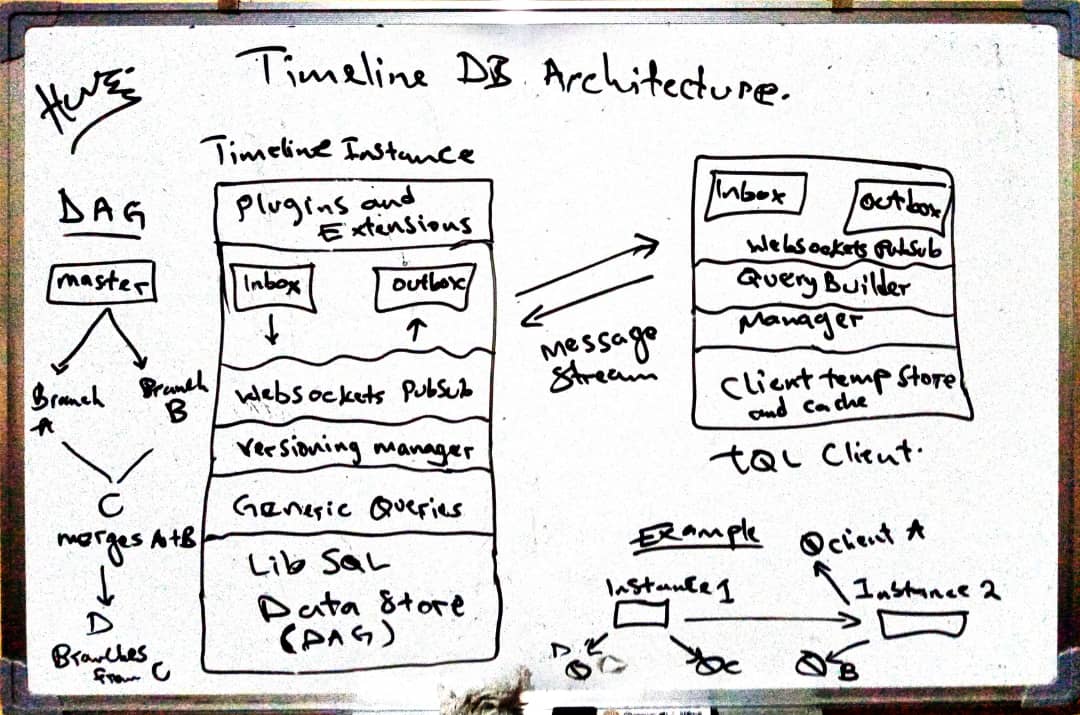 Timeline DB Architecture.
DAG
master
Branch
A
Branch
B
C
merges A+B
D
Branches
from C
Timeline Instance
Plugins and
Extensions
Inbox
Outbox
Websockets PubSub
Versioning manager
Generic Queries
Lib SQL
Data Store
(DAG)
Message
Stream
Inbox
Outbox
Websockets PubSub
Query Builder
Manager
Client temp Store
and cache
tQL Client.
Example
Instance 1
D
C
Client A
Instance 2
B